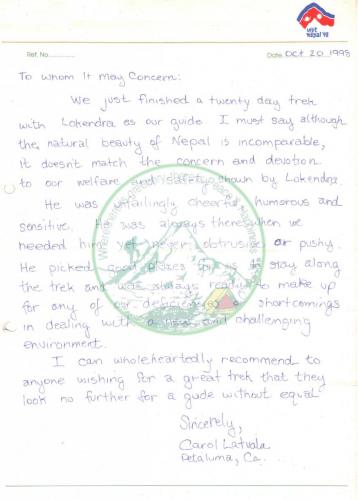 visit
nepal '98
Ref. No.
Date Oct 20 1998
To whom It may Concern:
We just finished a twenty day trek
with Lokendra as our guide. I must say although
the natural beauty of Nepal is incomparable,
it doesn't match the concern and devotion
to our welfare and safety shown by Lokendra.
He was unfailingly cheerful, humorous and
sensitive. He was always there when we
needed him yet never obtrusive or pushy.
He picked good places for us to stay along
the trek and was always ready to make up
for any of our deficiencies or shortcomings
in dealing with a new and challenging
environment.
I can wholeheartedly recommend to
anyone wishing for a great trek that they
look no further for a guide without equal
Sincerely,
Carol Latvala
Petaluma, Ca.